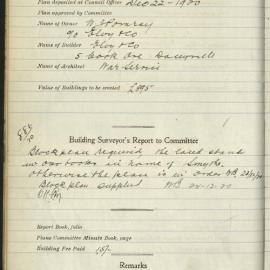 Plan deposited at Council Office Dec 22 - 1920
Plan approved by Committee
Name of Owner W J Pomeray
c/o Eloy & Co
Name of Builder Eloy & Co
5 Cook Ave Daceyville
Name of Architect War Service
Value of Buildings to be erected £895
Building Surveyor's Report to Committee
Block plan required the land stand
in our books in name of Smythe.
otherwise the plan is in order
Block plan supplied 24-12-20
Report Book, folio
Plans Committee Minute Book, page
Building Fee Paid 15/-
Remarks